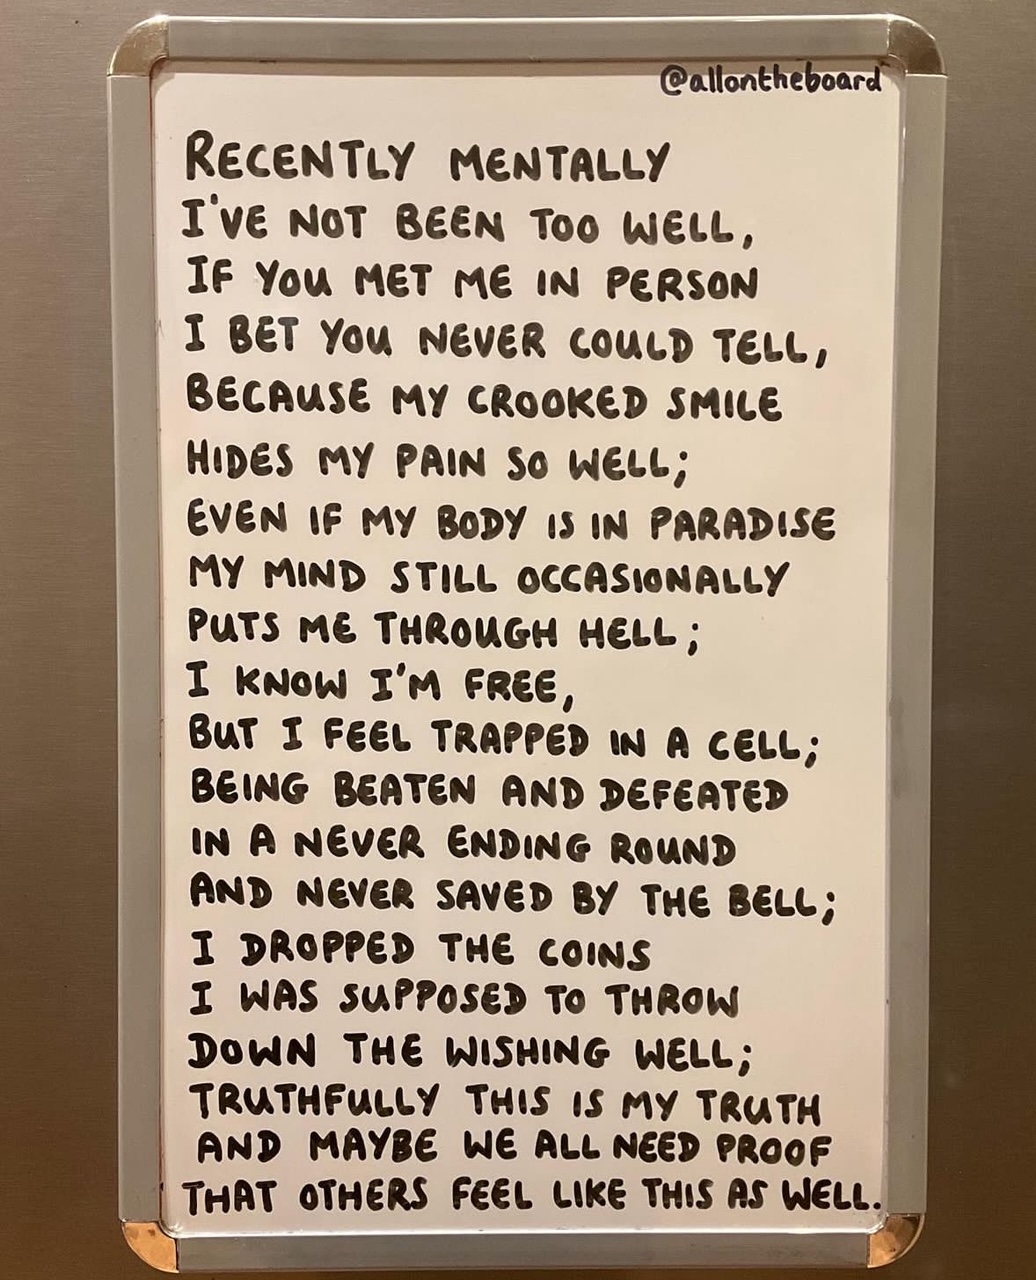 @allontheboard
RECENTLY MENTALLY
I'VE NOT BEEN TOO WELL,
IF YOU MET ME IN PERSON
I BET YOU NEVER COULD TELL,
BECAUSE MY CROOKED SMILE
HIDES MY PAIN SO WELL;
EVEN IF MY BODY IS IN PARADISE
MY MIND STILL OCCASIONALLY
PUTS ME THROUGH HELL;
I KNOW I'M FREE,
BUT I FEEL TRAPPED IN A CELL;
BEING BEATEN AND DEFEATED
IN A NEVER ENDING ROUND
AND NEVER SAVED BY THE BELL;
I DROPPED THE COINS
I WAS SUPPOSED TO THROW
DOWN THE WISHING WELL;
TRUTHFULLY THIS IS MY TRUTH
AND MAYBE WE ALL NEED PROOF
THAT OTHERS FEEL LIKE THIS AS WELL.